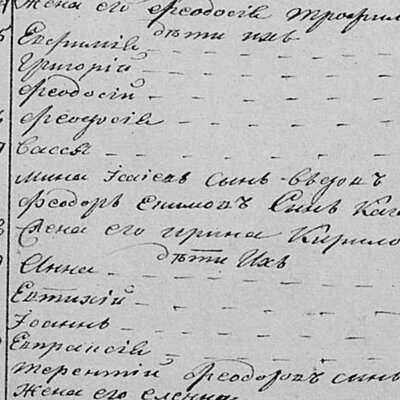 Жена его Феодосія Трофим
дѣти ихъ
Евфимія
Григорій
Феодосій
Феодосія
Васса
Мина Ісаіевъ сынъ вдовъ
Феодоръ Єфимовъ Сынъ
Жена его Ирина Кирило
дѣти Ихъ
Анна
Евтихій
Іоаннъ
Евпраксія
Терентій Феодоровъ сынъ
Жена его Єлена